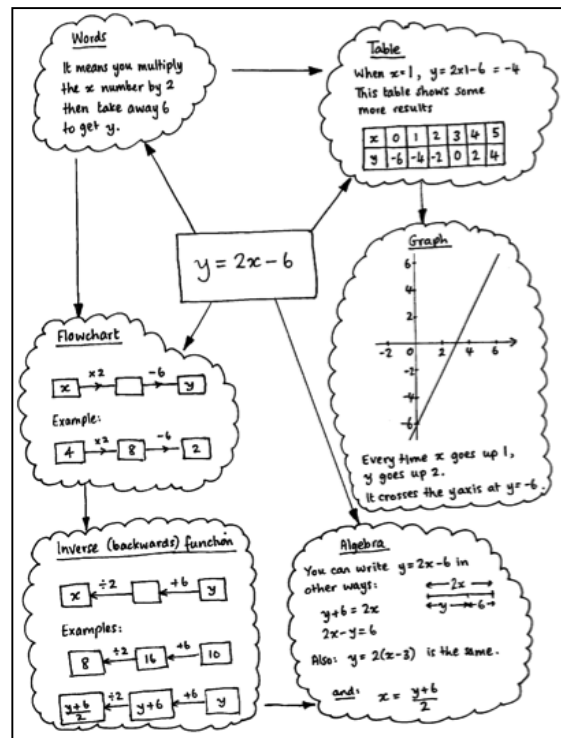 Words
It means you multiply
the x number by 2
then take away 6
to get y.
Table
When x=1, y=2x1-6 = -4
This table shows some
more results
x 0 1 2 3 4 5
y -6 -4 -2 0 2 4
y = 2x - 6
Graph
6
4
2
-2 0 2 4 6
-2
-4
-6
Every time x goes up 1,
y goes up 2.
It crosses the y axis at y=-6.
Flowchart
×2 -6
x y
Example:
×2 -6
4 8 2
Inverse (backwards) function
÷2 +6
x y
Examples:
÷2 +6
8 16 10
÷2 +6
y+6/2 y+6 y
Algebra
You can write y=2x-6 in
other ways:
2x
y+6 = 2x
y 6
2x-y=6
Also: y = 2(x-3) is the same.
and: x = y+6/2